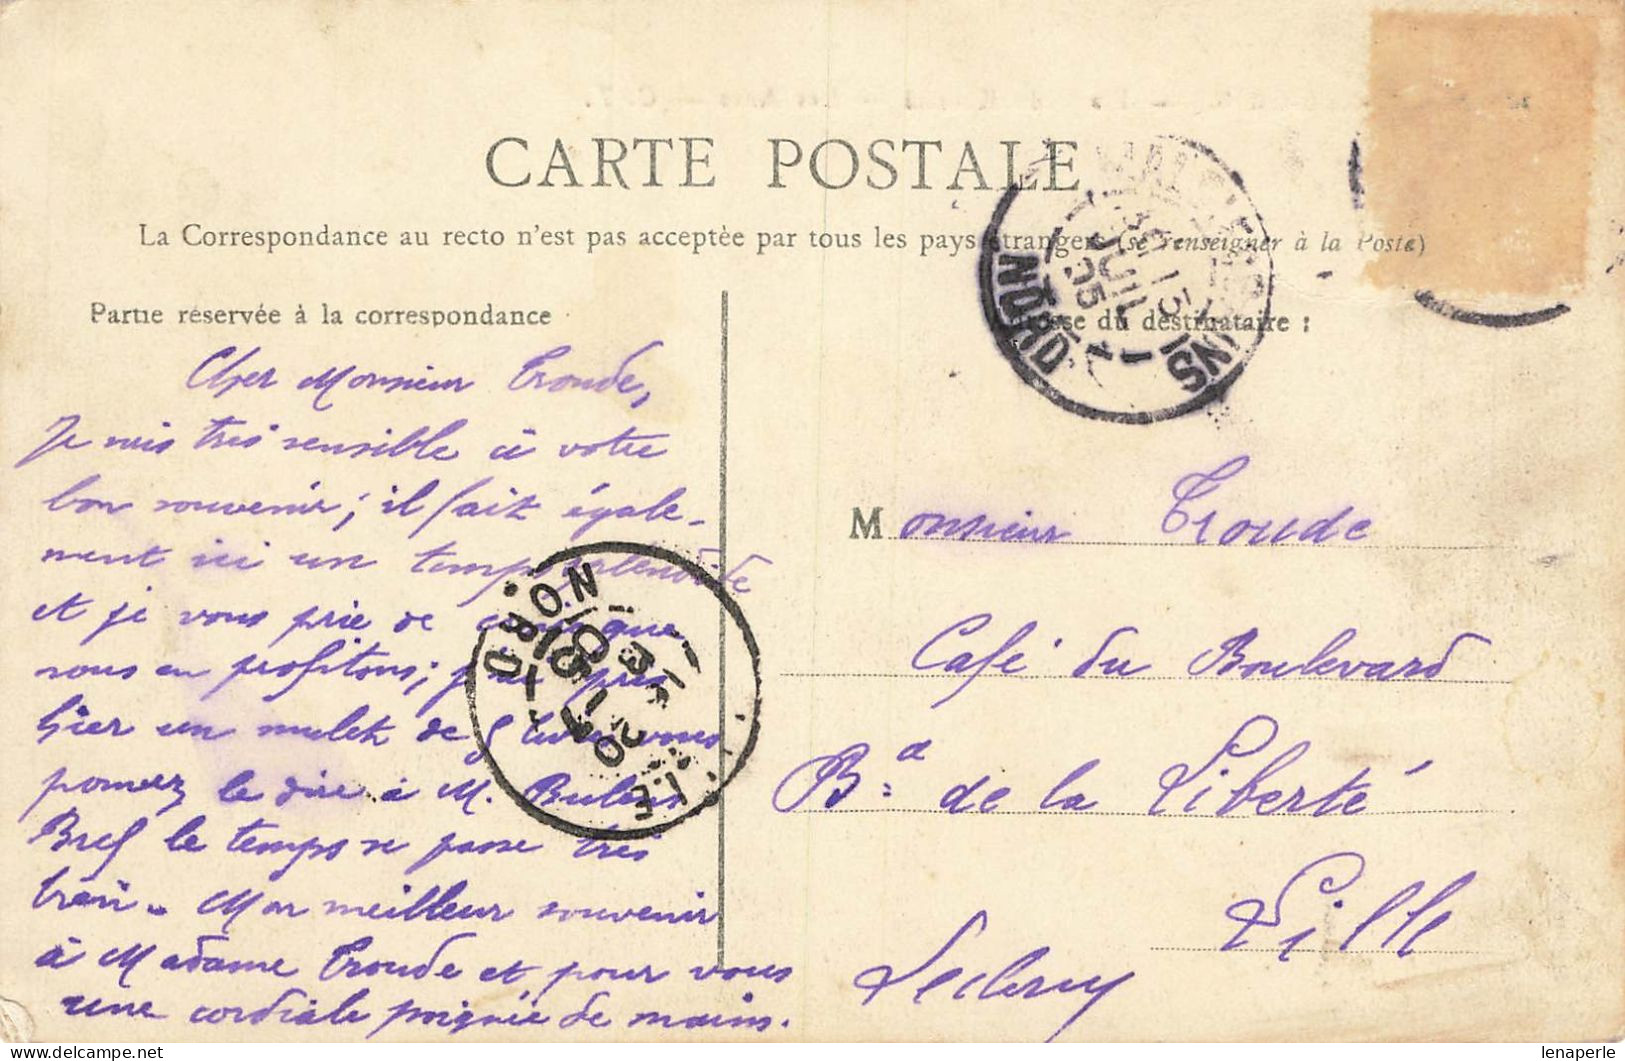 CARTE POSTALE
La Correspondance au recto n'est pas acceptée par tous les pays étrangers (se renseigner à la Poste)
Partie réservée à la correspondance
Adresse du destinataire :
Cher Monsieur Troude,
Je suis très sensible à votre
bon souvenir ; il fait égale-
ment ici un temps splendide
et je vous prie de croire que
nous en profitons ; j'ai pris
hier un mulet de 5 livres vous
pouvez le dire à M.
Bref le temps se passe très
bien. Mon meilleur souvenir
à Madame Troude et pour vous
une cordiale poignée de mains.
Leclercq
Monsieur Troude
Café du Boulevard
Bd de la Liberté
Lille
NORD
NORD
lenaperle